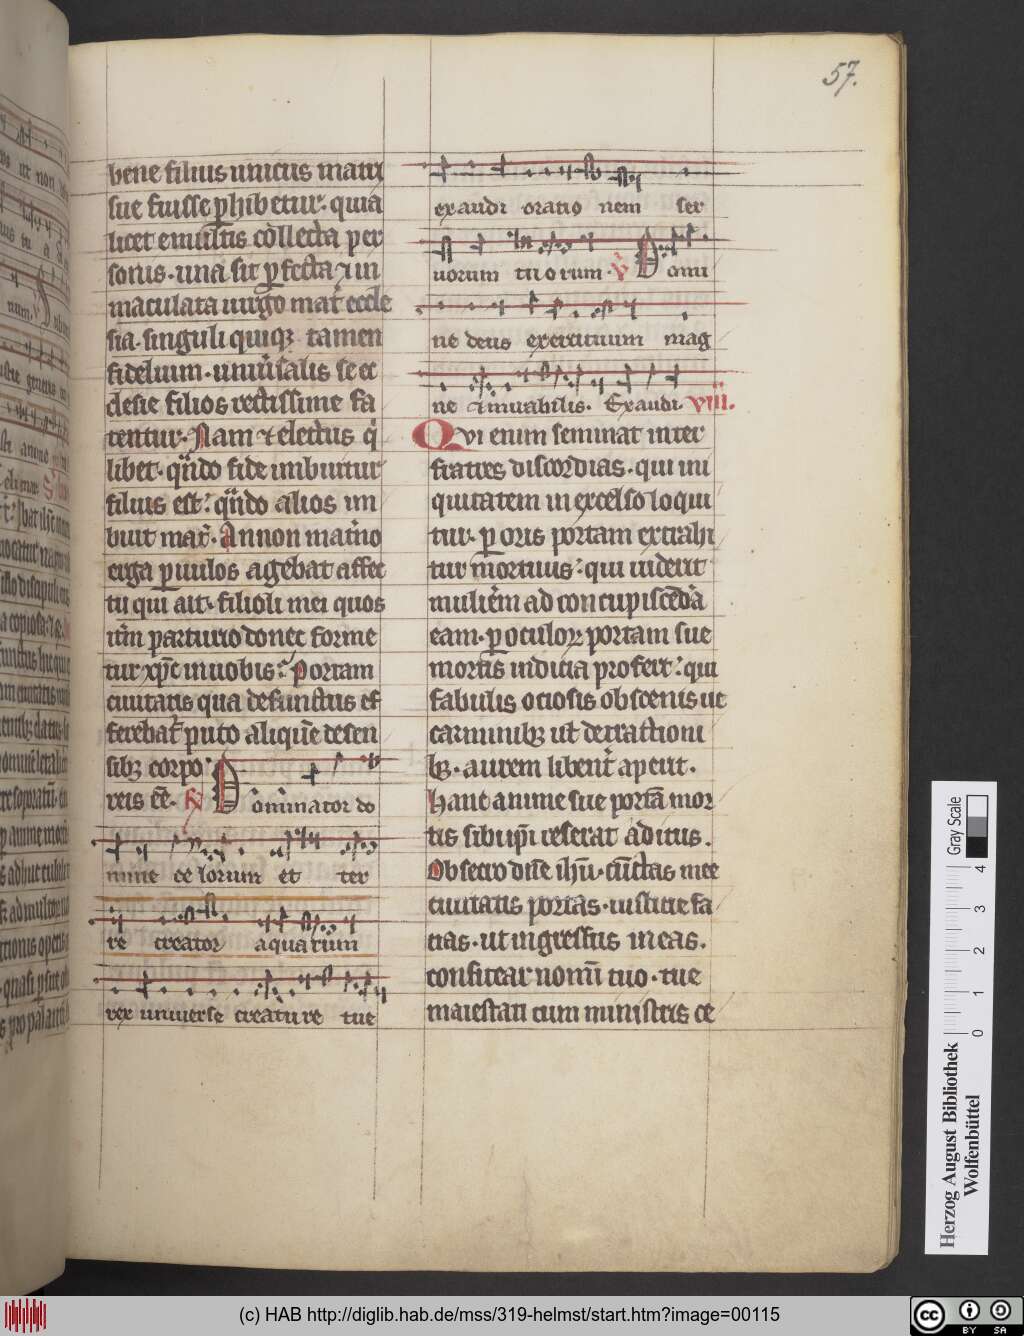 57.
bene filius unicus matri
sue fuisse phibetur. quia
licet e multis collecta per
sonis. una sit pfecta ⁊ in
maculata uirgo mat̕ eccle
sia. singuli quiqꝫ tamen
fidelium. uniu̕salis se ec
clesie filios rectissime fa
tentur. Nam ⁊ electus q̕
libet. qn̄do fide imbuitur
filius est: qn̄do alios im
buit mat̕. An non mat̕no
erga puulos agebat affec
tu qui ait. filioli mei quos
itm̕ parturio donec forme
tur xp̄c in uobis: Portam
ciuitatis qua defunctus ef
ferebat̕ puto aliquē de sen
sibꝫ corpo
reis eē. R̕ Dominator do
mine celorum et ter
re creator aquarum
rex uniuerse creature tue
exaudi oratio nem ser
uorum tuorum. V̕ Domi
ne deus exercituum mag
ne ⁊ mirabilis. Exaudi. VIII.
Qui enim seminat inter
fratres discordias. qui ini
quitatem in excelso loqui
tur. p oris portam extrahi
tur mortuus: qui uiderit
muliēm ad concupiscēdā
eam. p oculoꝝ portam sue
mortis indicia profert: qui
fabulis ociosis obscenis ue
carminibꝫ ul̕ detractioni
bꝫ. aurem libent̕ aperit.
hanc anime sue portā mor
tis sibi ipi reserat aditus.
Obsecro dn̄e ih̄u. cūctas mee
ciuitatis portas. iusticie fa
cias. ut ingressus in eas.
confitear nomī tuo. tue
maiestati cum ministris ce
(c) HAB http://diglib.hab.de/mss/319-helmst/start.htm?image=00115
Herzog August Bibliothek
Wolfenbüttel
Gray Scale
0 1 2 3 4
cc BY SA